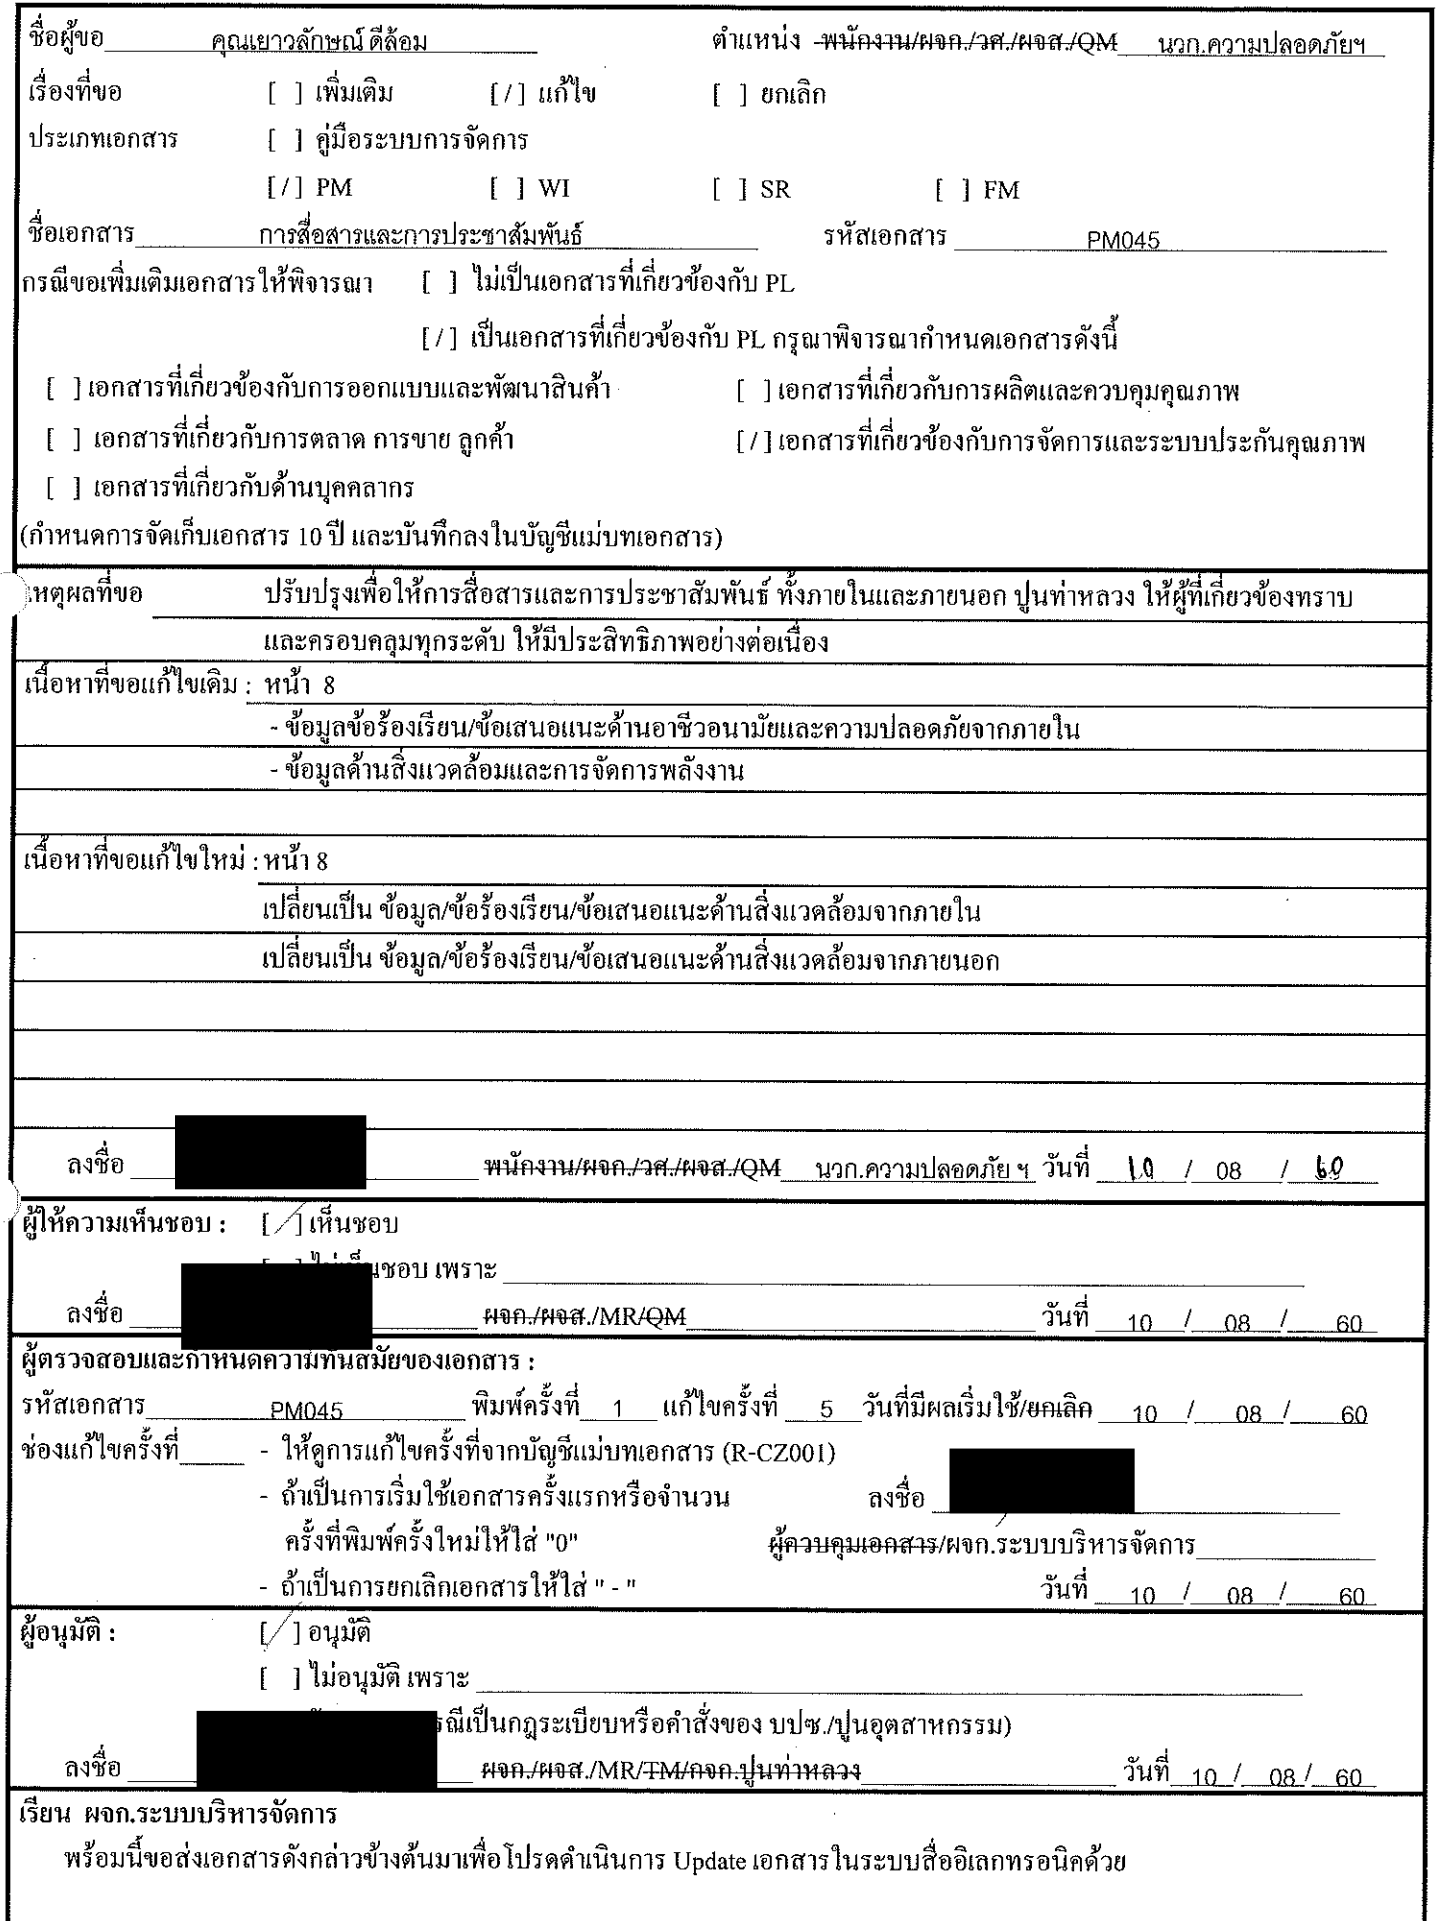 ชื่อผู้ขอ คุณเยาวลักษณ์ ดีล้อม ตำแหน่ง พนักงาน/ผจก./วศ./ผจส./QM นวก.ความปลอดภัยฯ
เรื่องที่ขอ [ ] เพิ่มเติม [/] แก้ไข [ ] ยกเลิก
ประเภทเอกสาร [ ] คู่มือระบบการจัดการ
[/] PM [ ] WI [ ] SR [ ] FM
ชื่อเอกสาร การสื่อสารและการประชาสัมพันธ์ รหัสเอกสาร PM045
กรณีขอเพิ่มเติมเอกสารให้พิจารณา [ ] ไม่เป็นเอกสารที่เกี่ยวข้องกับ PL
[/] เป็นเอกสารที่เกี่ยวข้องกับ PL กรุณาพิจารณากำหนดเอกสารดังนี้
[ ] เอกสารที่เกี่ยวข้องกับการออกแบบและพัฒนาสินค้า [ ] เอกสารที่เกี่ยวกับการผลิตและควบคุมคุณภาพ
[ ] เอกสารที่เกี่ยวกับการตลาด การขาย ลูกค้า [/] เอกสารที่เกี่ยวข้องกับการจัดการและระบบประกันคุณภาพ
[ ] เอกสารที่เกี่ยวกับด้านบุคคลากร
(กำหนดการจัดเก็บเอกสาร 10 ปี และบันทึกลงในบัญชีแม่บทเอกสาร)
เหตุผลที่ขอ ปรับปรุงเพื่อให้การสื่อสารและการประชาสัมพันธ์ ทั้งภายในและภายนอก ปูนท่าหลวง ให้ผู้ที่เกี่ยวข้องทราบ
และครอบคลุมทุกระดับ ให้มีประสิทธิภาพอย่างต่อเนื่อง
เนื้อหาที่ขอแก้ไขเดิม : หน้า 8
- ข้อมูลข้อร้องเรียน/ข้อเสนอแนะด้านอาชีวอนามัยและความปลอดภัยจากภายใน
- ข้อมูลด้านสิ่งแวดล้อมและการจัดการพลังงาน
เนื้อหาที่ขอแก้ไขใหม่ : หน้า 8
เปลี่ยนเป็น ข้อมูล/ข้อร้องเรียน/ข้อเสนอแนะด้านสิ่งแวดล้อมจากภายใน
เปลี่ยนเป็น ข้อมูล/ข้อร้องเรียน/ข้อเสนอแนะด้านสิ่งแวดล้อมจากภายนอก
ลงชื่อ พนักงาน/ผจก./วศ./ผจส./QM นวก.ความปลอดภัย ฯ วันที่ 10 / 08 / 60
ผู้ให้ความเห็นชอบ : [/] เห็นชอบ
[ ] ไม่เห็นชอบ เพราะ
ลงชื่อ ผจก./ผจส./MR/QM วันที่ 10 / 08 / 60
ผู้ตรวจสอบและกำหนดความทันสมัยของเอกสาร :
รหัสเอกสาร PM045 พิมพ์ครั้งที่ 1 แก้ไขครั้งที่ 5 วันที่มีผลเริ่มใช้/ยกเลิก 10 / 08 / 60
ช่องแก้ไขครั้งที่ - ให้ดูการแก้ไขครั้งที่จากบัญชีแม่บทเอกสาร (R-CZ001)
- ถ้าเป็นการเริ่มใช้เอกสารครั้งแรกหรือจำนวน ลงชื่อ
ครั้งที่พิมพ์ครั้งใหม่ให้ใส่ "0" ผู้ควบคุมเอกสาร/ผจก.ระบบบริหารจัดการ
- ถ้าเป็นการยกเลิกเอกสารให้ใส่ " - " วันที่ 10 / 08 / 60
ผู้อนุมัติ : [/] อนุมัติ
[ ] ไม่อนุมัติ เพราะ
รณีเป็นกฎระเบียบหรือคำสั่งของ บปซ./ปูนอุตสาหกรรม)
ลงชื่อ ผจก./ผจส./MR/TM/กจก.ปูนท่าหลวง วันที่ 10 / 08 / 60
เรียน ผจก.ระบบบริหารจัดการ
พร้อมนี้ขอส่งเอกสารดังกล่าวข้างต้นมาเพื่อโปรดดำเนินการ Update เอกสารในระบบสื่ออิเลกทรอนิคด้วย